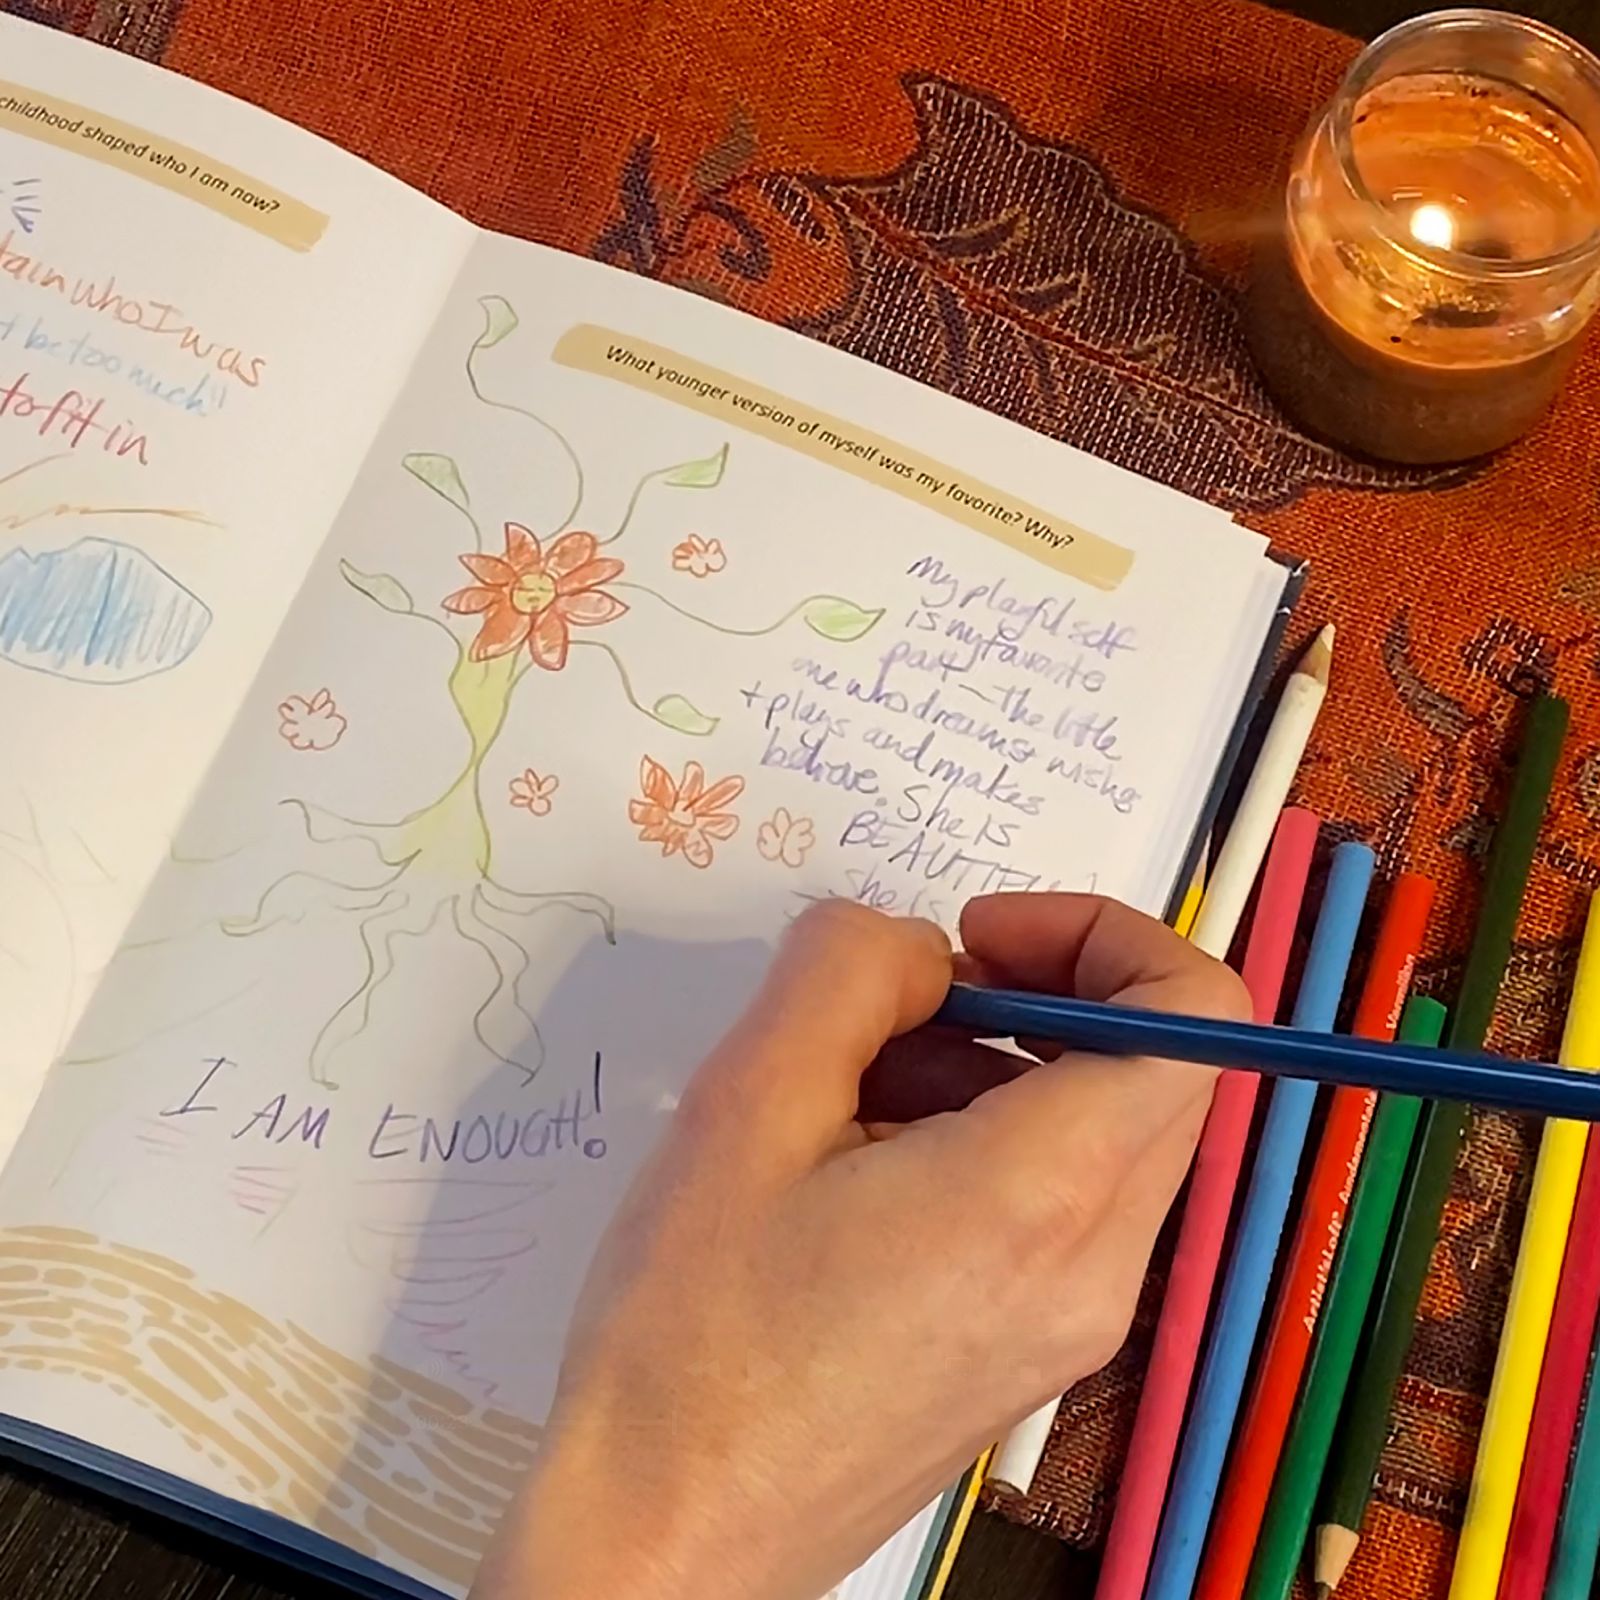 childhood shaped who I am now?
tain who I was
t be too much"
to fit in
What younger version of myself was my favorite? Why?
My playful self
is my favorite
part — the little
one who dreams + wishes
+ plays and makes
believe. She is
BEAUTIFUL!
She is
I AM ENOUGH!
Artist's Loft Fundamentals Vermilion